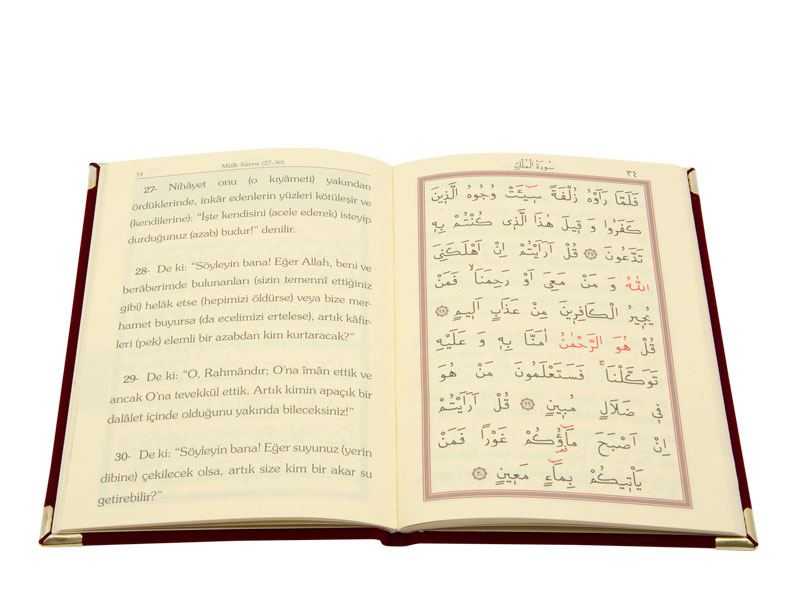 34 Mülk Sûresi (27-30)
27- Nihâyet onu (o kıyâmeti) yakından
ördüklerinde, inkâr edenlerin yüzleri kötüleşir ve
(kendilerine): “İşte kendisini (acele ederek) isteyip
durduğunuz (azab) budur!” denilir.
28- De ki: “Söyleyin bana! Eğer Allah, beni ve
berâberimde bulunanları (sizin temennî ettiğiniz
gibi) helâk etse (hepimizi öldürse) veya bize mer-
hamet buyursa (da ecelimizi ertelese), artık kâfir-
leri (pek) elemli bir azabdan kim kurtaracak?”
29- De ki: “O, Rahmândır; O'na îmân ettik ve
ancak O'na tevekkül ettik. Artık kimin apaçık bir
dalâlet içinde olduğunu yakında bileceksiniz!”
30- De ki: “Söyleyin bana! Eğer suyunuz (yerin
dibine) çekilecek olsa, artık size kim bir akar su
getirebilir?”
سُورَةُ الْمُلْكِ ٣٤
فَلَمَّا رَاَوْهُ زُلْفَةً سٖٓيـَٔتْ وُجُوهُ الَّذٖينَ
كَفَرُوا وَ قٖيلَ هٰذَا الَّذٖى كُنْتُمْ بِهٖ
تَدَّعُونَ ﴿٢٧﴾ قُلْ اَرَاَيْتُمْ اِنْ اَهْلَكَنِىَ
اللّٰهُ وَ مَنْ مَعِىَ اَوْ رَحِمَنَاۙ فَمَنْ
يُجٖيرُ الْكَافِرٖينَ مِنْ عَذَابٍ اَلٖيمٍ ﴿٢٨﴾
قُلْ هُوَ الرَّحْمٰنُ اٰمَنَّا بِهٖ وَ عَلَيْهِ
تَوَكَّلْنَاۚ فَسَتَعْلَمُونَ مَنْ هُوَ
فٖى ضَلَالٍ مُبٖينٍ ﴿٢٩﴾ قُلْ اَرَاَيْتُمْ
اِنْ اَصْبَحَ مَٓاؤُكُمْ غَوْرًا فَمَنْ
يَاْتٖيكُمْ بِمَٓاءٍ مَعٖينٍ ﴿٣٠﴾